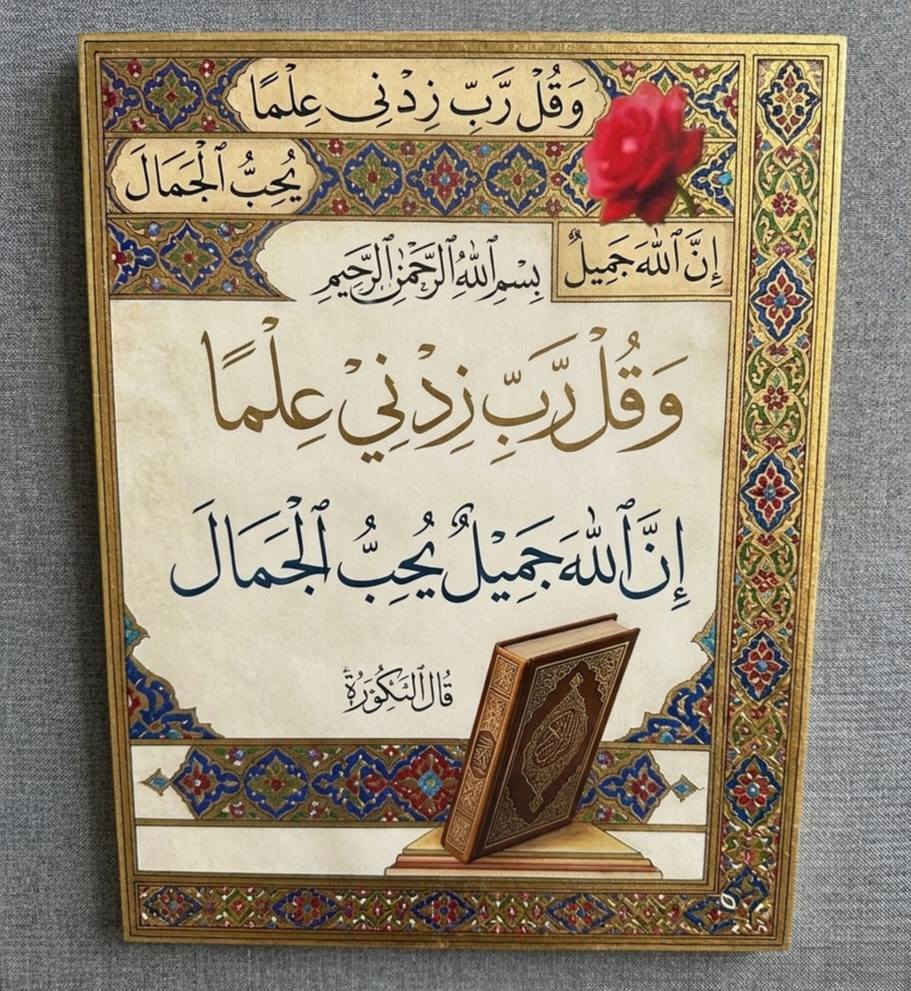 وَقُلْ رَّبِّ زِدْنِى عِلْمًا
يُحِبُّ ٱلْجَمَالَ
إِنَّ ٱللّٰهَ جَمِيلٌ
بِسْمِ ٱللّٰهِ ٱلرَّحْمٰنِ ٱلرَّحِيمِ
وَقُلْ رَّبِّ زِدْنِيْ عِلْمًا
إِنَّ ٱللّٰهَ جَمِيْلٌ يُحِبُّ ٱلْجَمَالَ
قَالَ